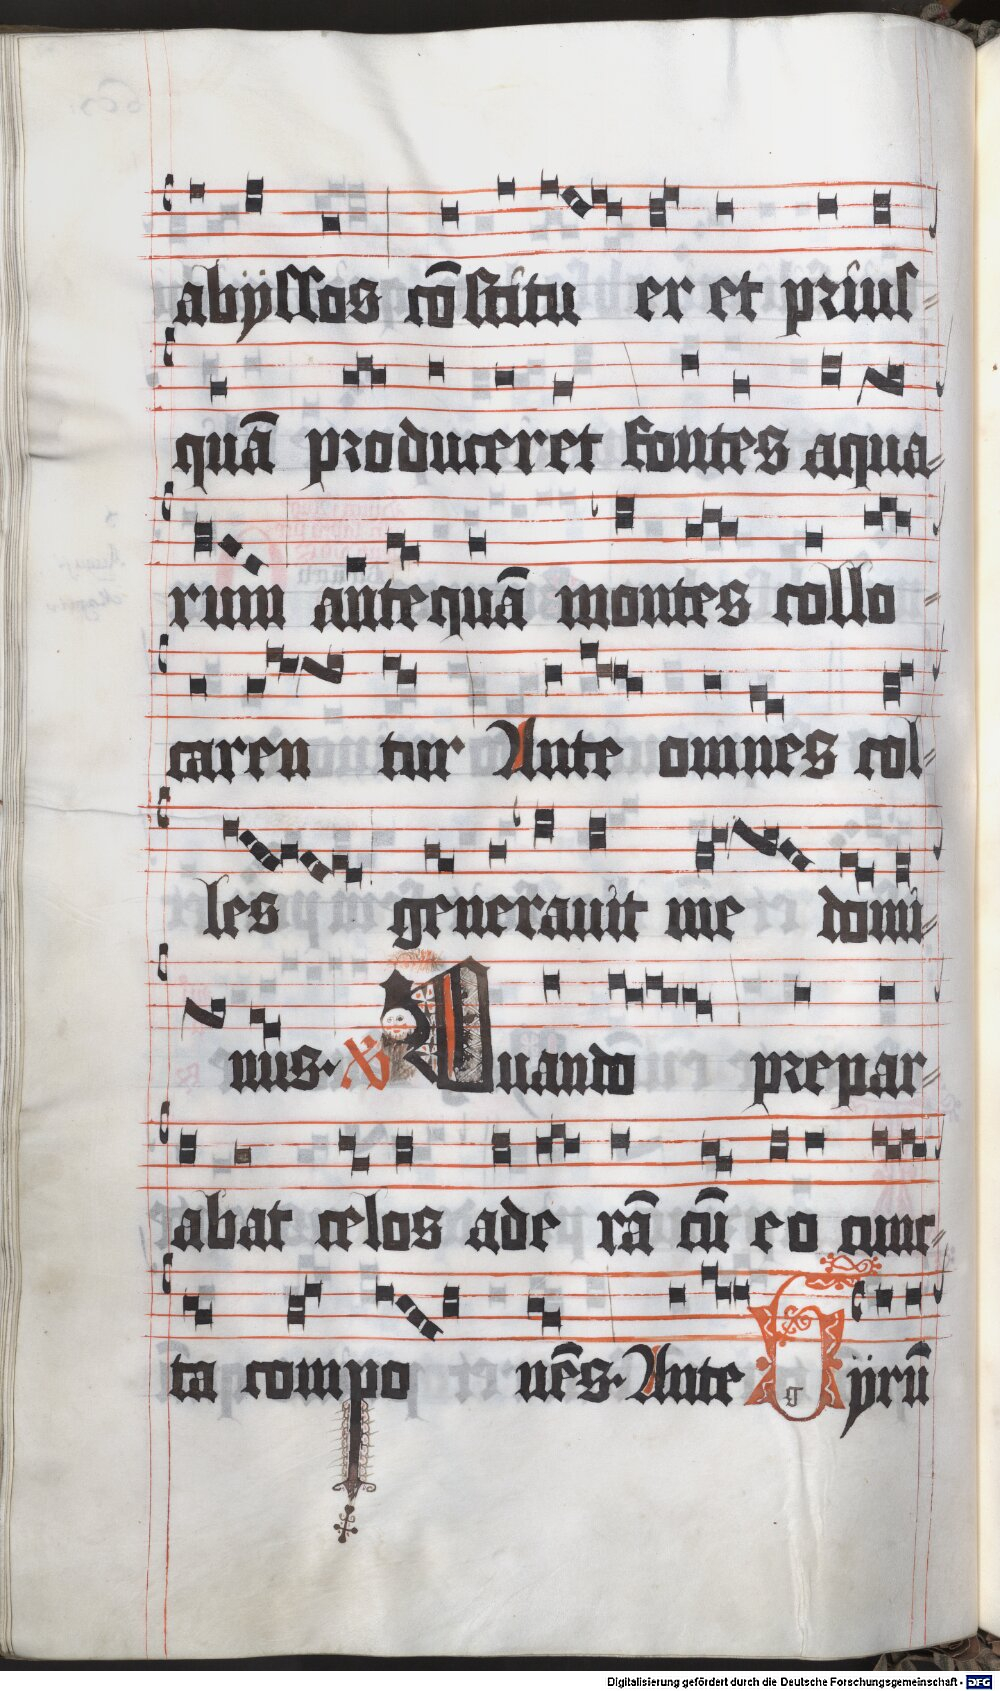 abÿssos cōstitu er et prius
quā produceret fontes aqua
rum antequā montes collo
caren tur Ante omnes col
les generauit me domi
nus· V Quando prepar
abat celos ade rā cū eo cunc
ta compo nēs· Ante Gyrū
Digitalisierung gefördert durch die Deutsche Forschungsgemeinschaft - DFG